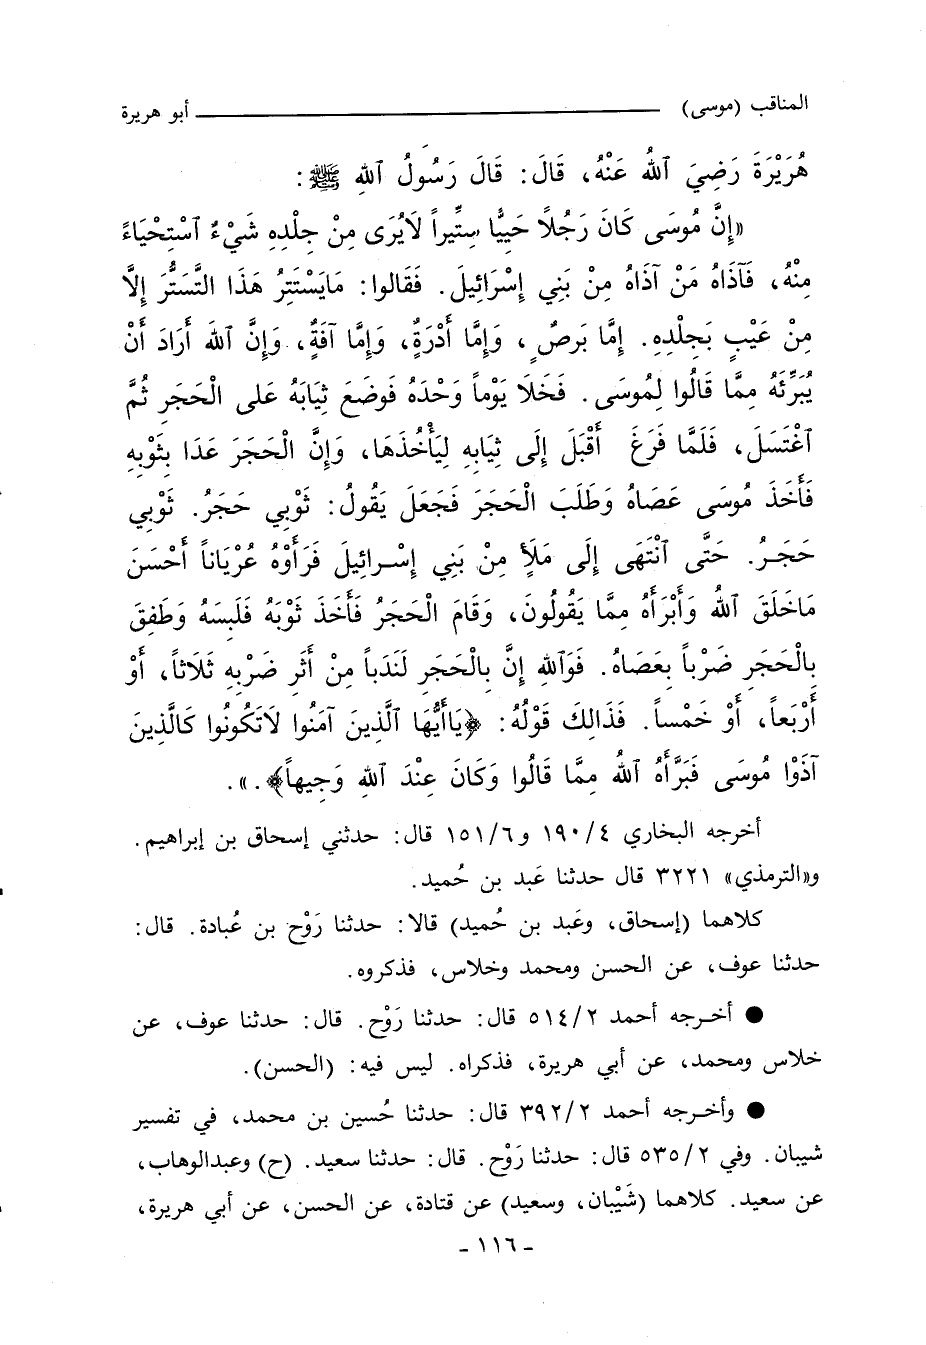 المناقب (موسى) ــــــــــــ أبو هريرة
هُرَيْرَةَ رَضِيَ ٱللهُ عَنْهُ، قَالَ: قَالَ رَسُولُ ٱللهِ ﷺ:
«إِنَّ مُوسَى كَانَ رَجُلاً حَيِيًّا سِتِّيراً لَايُرَى مِنْ جِلْدِهِ شَيْءٌ ٱسْتِحْيَاءً
مِنْهُ، فَآذَاهُ مَنْ آذَاهُ مِنْ بَنِي إِسْرَائِيلَ. فَقَالوا: مَايَسْتَتِرُ هَذَا التَّسَتُّرَ إِلَّا
مِنْ عَيْبٍ بَجِلْدِهِ. إِمَّا بَرَصٌ، وَإِمَّا أُدْرَةٌ، وَإِمَّا آفَةٌ، وَإِنَّ ٱللهَ أَرَادَ أَنْ
يُبَرِّئَهُ مِمَّا قَالُوا لِمُوسَى. فَخَلَا يَوْماً وَحْدَهُ فَوضَعَ ثِيَابَهُ عَلى الْحَجَرِ ثُمَّ
ٱغْتَسَلَ، فَلَمَّا فَرَغَ أَقْبَلَ إِلَى ثِيَابِهِ لِيَأْخُذَهَا، وَإِنَّ الْحَجَرَ عَدَا بِثَوْبِهِ
فَأَخَذَ مُوسَى عَصَاهُ وَطَلَبَ الْحَجَرَ فَجَعَلَ يَقُولُ: ثَوْبِي حَجَرُ. ثَوْبِي
حَجَرُ. حَتَّى ٱنْتَهَى إِلَى مَلَأٍ مِنْ بَنِي إِسْرائِيلَ فَرَأَوْهُ عُرْيَاناً أَحْسَنَ
مَاخَلَقَ ٱللهُ وَأَبْرَأَهُ مِمَّا يَقُولُونَ، وَقَامَ الْحَجَرُ فَأَخَذَ ثَوْبَهُ فَلَبِسَهُ وَطَفِقَ
بِالْحَجَرِ ضَرْباً بِعَصَاهُ. فَوَٱللهِ إِنَّ بِالْحَجَرِ لَنَدَباً مِنْ أَثَرِ ضَرْبِهِ ثَلَاثاً، أَوْ
أَرْبَعاً، أَوْ خَمْساً. فَذَالِكَ قَوْلُهُ: ﴿يَاأَيُّهَا ٱلَّذِينَ آمَنُوا لَاتَكُونُوا كَالَّذِينَ
آذَوْا مُوسَى فَبَرَّأَهُ ٱللهُ مِمَّا قَالُوا وَكَانَ عِنْدَ ٱللهِ وَجِيهاً﴾.».
أخرجه البخاري ٤/‏١٩٠ و٦/‏١٥١ قال: حدثني إسحاق بن إبراهيم.
و«الترمذي» ٣٢٢١ قال حدثنا عَبد بن حُميد.
كلاهما (إسحاق، وعَبد بن حُميد) قالا: حدثنا رَوْح بن عُبادة. قال:
حدثنا عوف، عن الحسن ومحمد وخلاس، فذكروه.
● أخرجه أحمد ٢/‏٥١٤ قال: حدثنا رَوْح. قال: حدثنا عوف، عن
خلاس ومحمد، عن أبي هريرة، فذكراه. ليس فيه: (الحسن).
● وأخرجه أحمد ٢/‏٣٩٢ قال: حدثنا حُسين بن محمد، في تفسير
شيبان. وفي ٢/‏٥٣٥ قال: حدثنا رَوْح. قال: حدثنا سعيد. (ح) وعبدالوهاب،
عن سعيد. كلاهما (شَيْبان، وسعيد) عن قتادة، عن الحسن، عن أبي هريرة،
- ١١٦ -